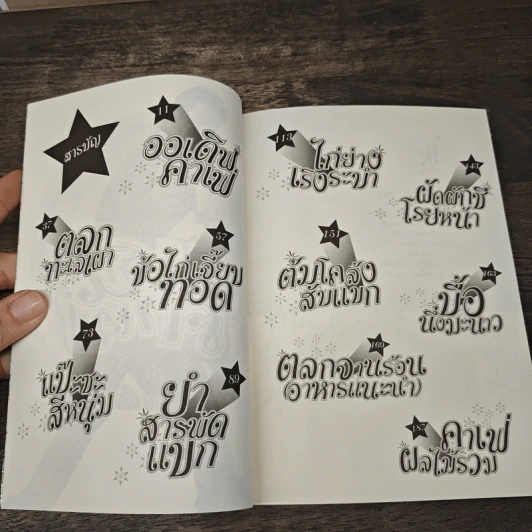 สารบัญ
11
ออเดิฟ
คาเฟ่
37
ตลก
ทะเลเผา
57
ข้อไก่เจี๊ยบ
ทอด
73
แป๊ะซะ
สีหนุ่ม
89
ยำ
สารพัด
แบก
113
ไก่ย่าง
เรงระบำ
143
ผัดผักชี
โรยหน้า
151
ต้มโคล้ง
สับแบก
163
บื้อ
นึ่งมะนาว
169
ตลกจานร้อน
(อาหารแนะนำ)
187
คาเฟ่
ผลไม้รวม